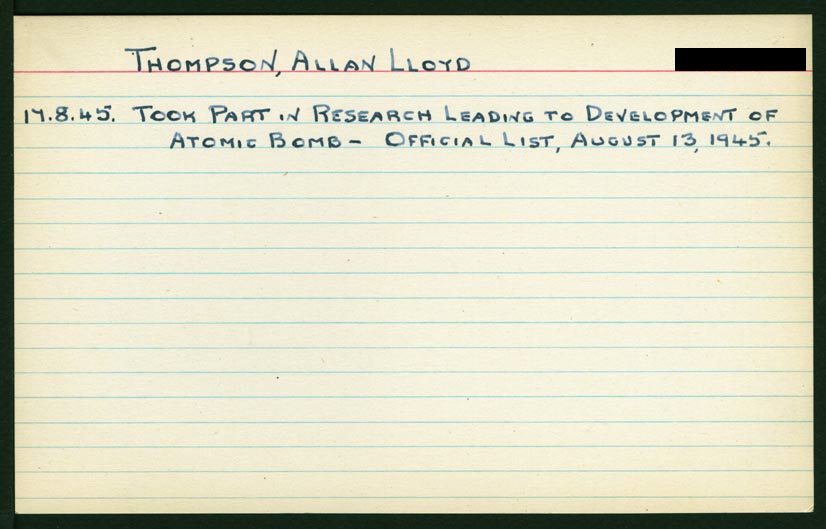 THOMPSON, ALLAN LLOYD
17.8.45. TOOK PART IN RESEARCH LEADING TO DEVELOPMENT OF
ATOMIC BOMB – OFFICIAL LIST, AUGUST 13, 1945.